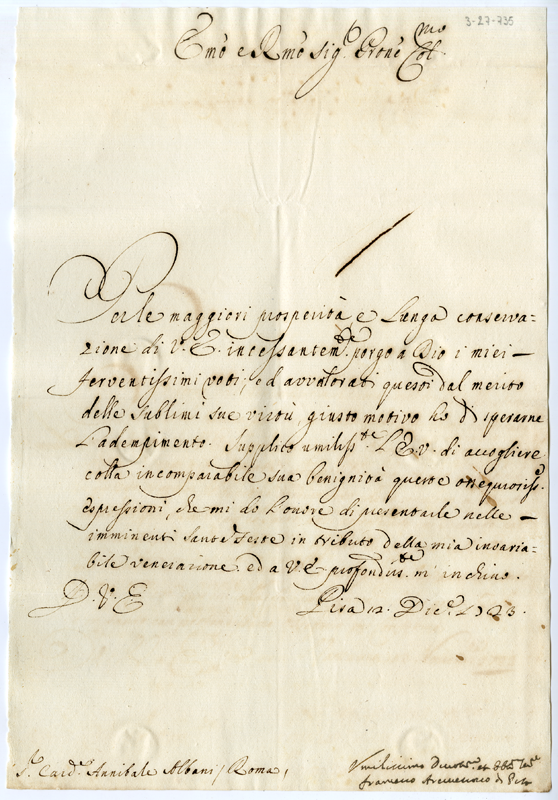 3-27-735
Emõ e Rmõ Sig.r Prone Col.mo
Per le maggiori prosperità e lunga conserva-
zione di V. E. incessantem.te porgo a Dio i miei
ferventissimi voti, ed avvalorati questi dal merito
delle sublimi sue virtù giusto motivo ho di sperarne
l'adempimento. Supplico umiliss.te l'E. V. di accogliere
colla incomparabile sua benignità queste ossequiosiss.e
espressioni, che mi do l'onore di presentarle nelle
imminenti Sante Feste in tributo della mia invaria-
bile venerazione. ed a V. E. profondiss.te m'inchino.
D. V. E.
Pisa 12. Dic.e 1723.
S.r Card.l Annibale Albani / Roma /
Umilissimo Devot.mo et Obb.mo
Francesco Arcivescovo di Pisa